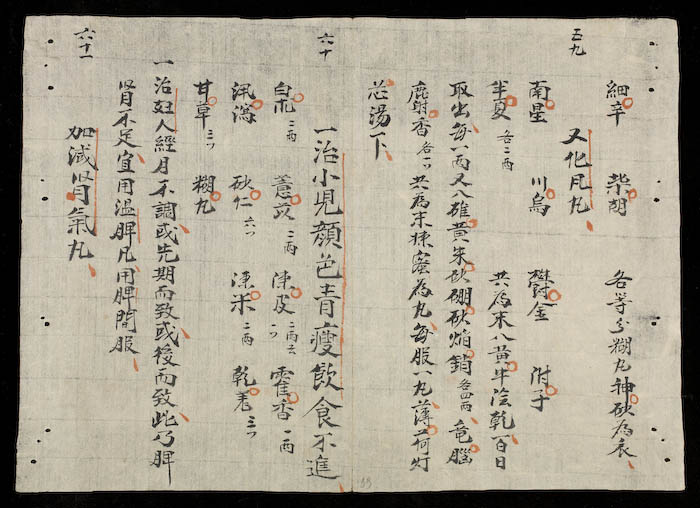 五九
細辛 柴胡 各等分糊丸神砂為衣
又化凡丸
南星 川烏 欝金 附子
半夏各二両 共為末入黄牛陰乾百日
取出每一両又入雄黄朱砂硼砂焰銷各四両竜腦
麝香各一〻共為末棟蜜為丸每服一丸薄荷灯
芯湯下
六十
一治小児顔色青瘦飲食不進
白朮二両 薏苡二両 陳皮二両 霍香一両
泬瀉 砂仁六〻 陳米二両 乾羌三〻
甘草三〻 糊丸
一治妇人經月不調或先期而致或後而致此乃脾
腎不足宜用溫脾凡用脾間服
六十一
加減腎氣丸